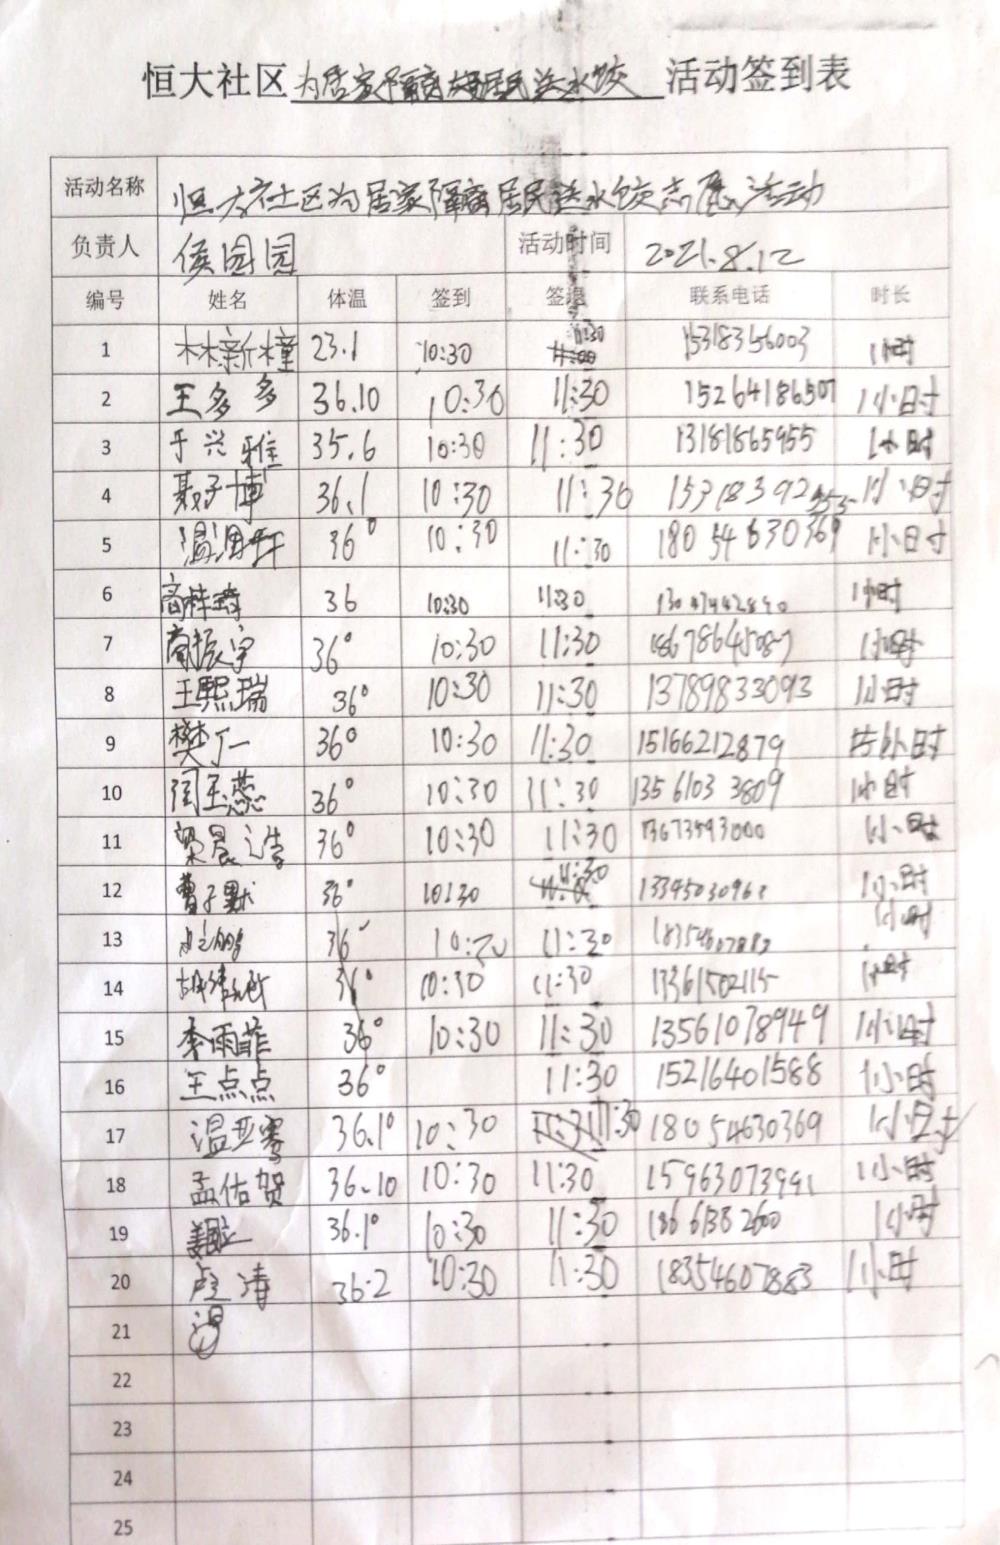 恒大社区为居家隔离居民送水饺 活动签到表
活动名称 恒大社区为居家隔离居民送水饺志愿活动
负责人 侯园园 活动时间 2021.8.12
编号 姓名 体温 签到 签退 联系电话 时长
1 林新橦 23.1 10:30 11:30 15318356003 1小时
2 王多多 36.10 10:30 11:30 15264186507 1小时
3 于兴雅 35.6 10:30 11:30 13181865955 1小时
4 聂子博 36.1 10:30 11:30 1小时
5 36° 10:30 11:30 18054630369 1小时
6 36 10:30 11:30 1小时
7 商振宇 36° 10:30 11:30 18678645087 1小时
8 王熙瑞 36° 10:30 11:30 13789833093 1小时
9 樊丁一 36° 10:30 11:30 15166212879 小时
10 闫玉蕊 36° 10:30 11:30 13561033809 小时
11 梁晨浩 36° 10:30 11:30 13673593000 1小时
12 曹子默 36° 10:30 11:30 1小时
13 36° 10:30 11:30 1小时
14 36° 10:30 11:30 13361502115 1小时
15 李雨菲 36° 10:30 11:30 13561078949 1小时
16 王点点 36° 11:30 15216401588 1小时
17 温亚雩 36.1° 10:30 11:30 18054630369 1小时
18 孟佑贺 36.10 10:30 11:30 15963073991 1小时
19 36.1° 10:30 11:30 18661382600 1小时
20 卢涛 36.2 10:30 11:30 18354607883 1小时
21 温
22
23
24
25